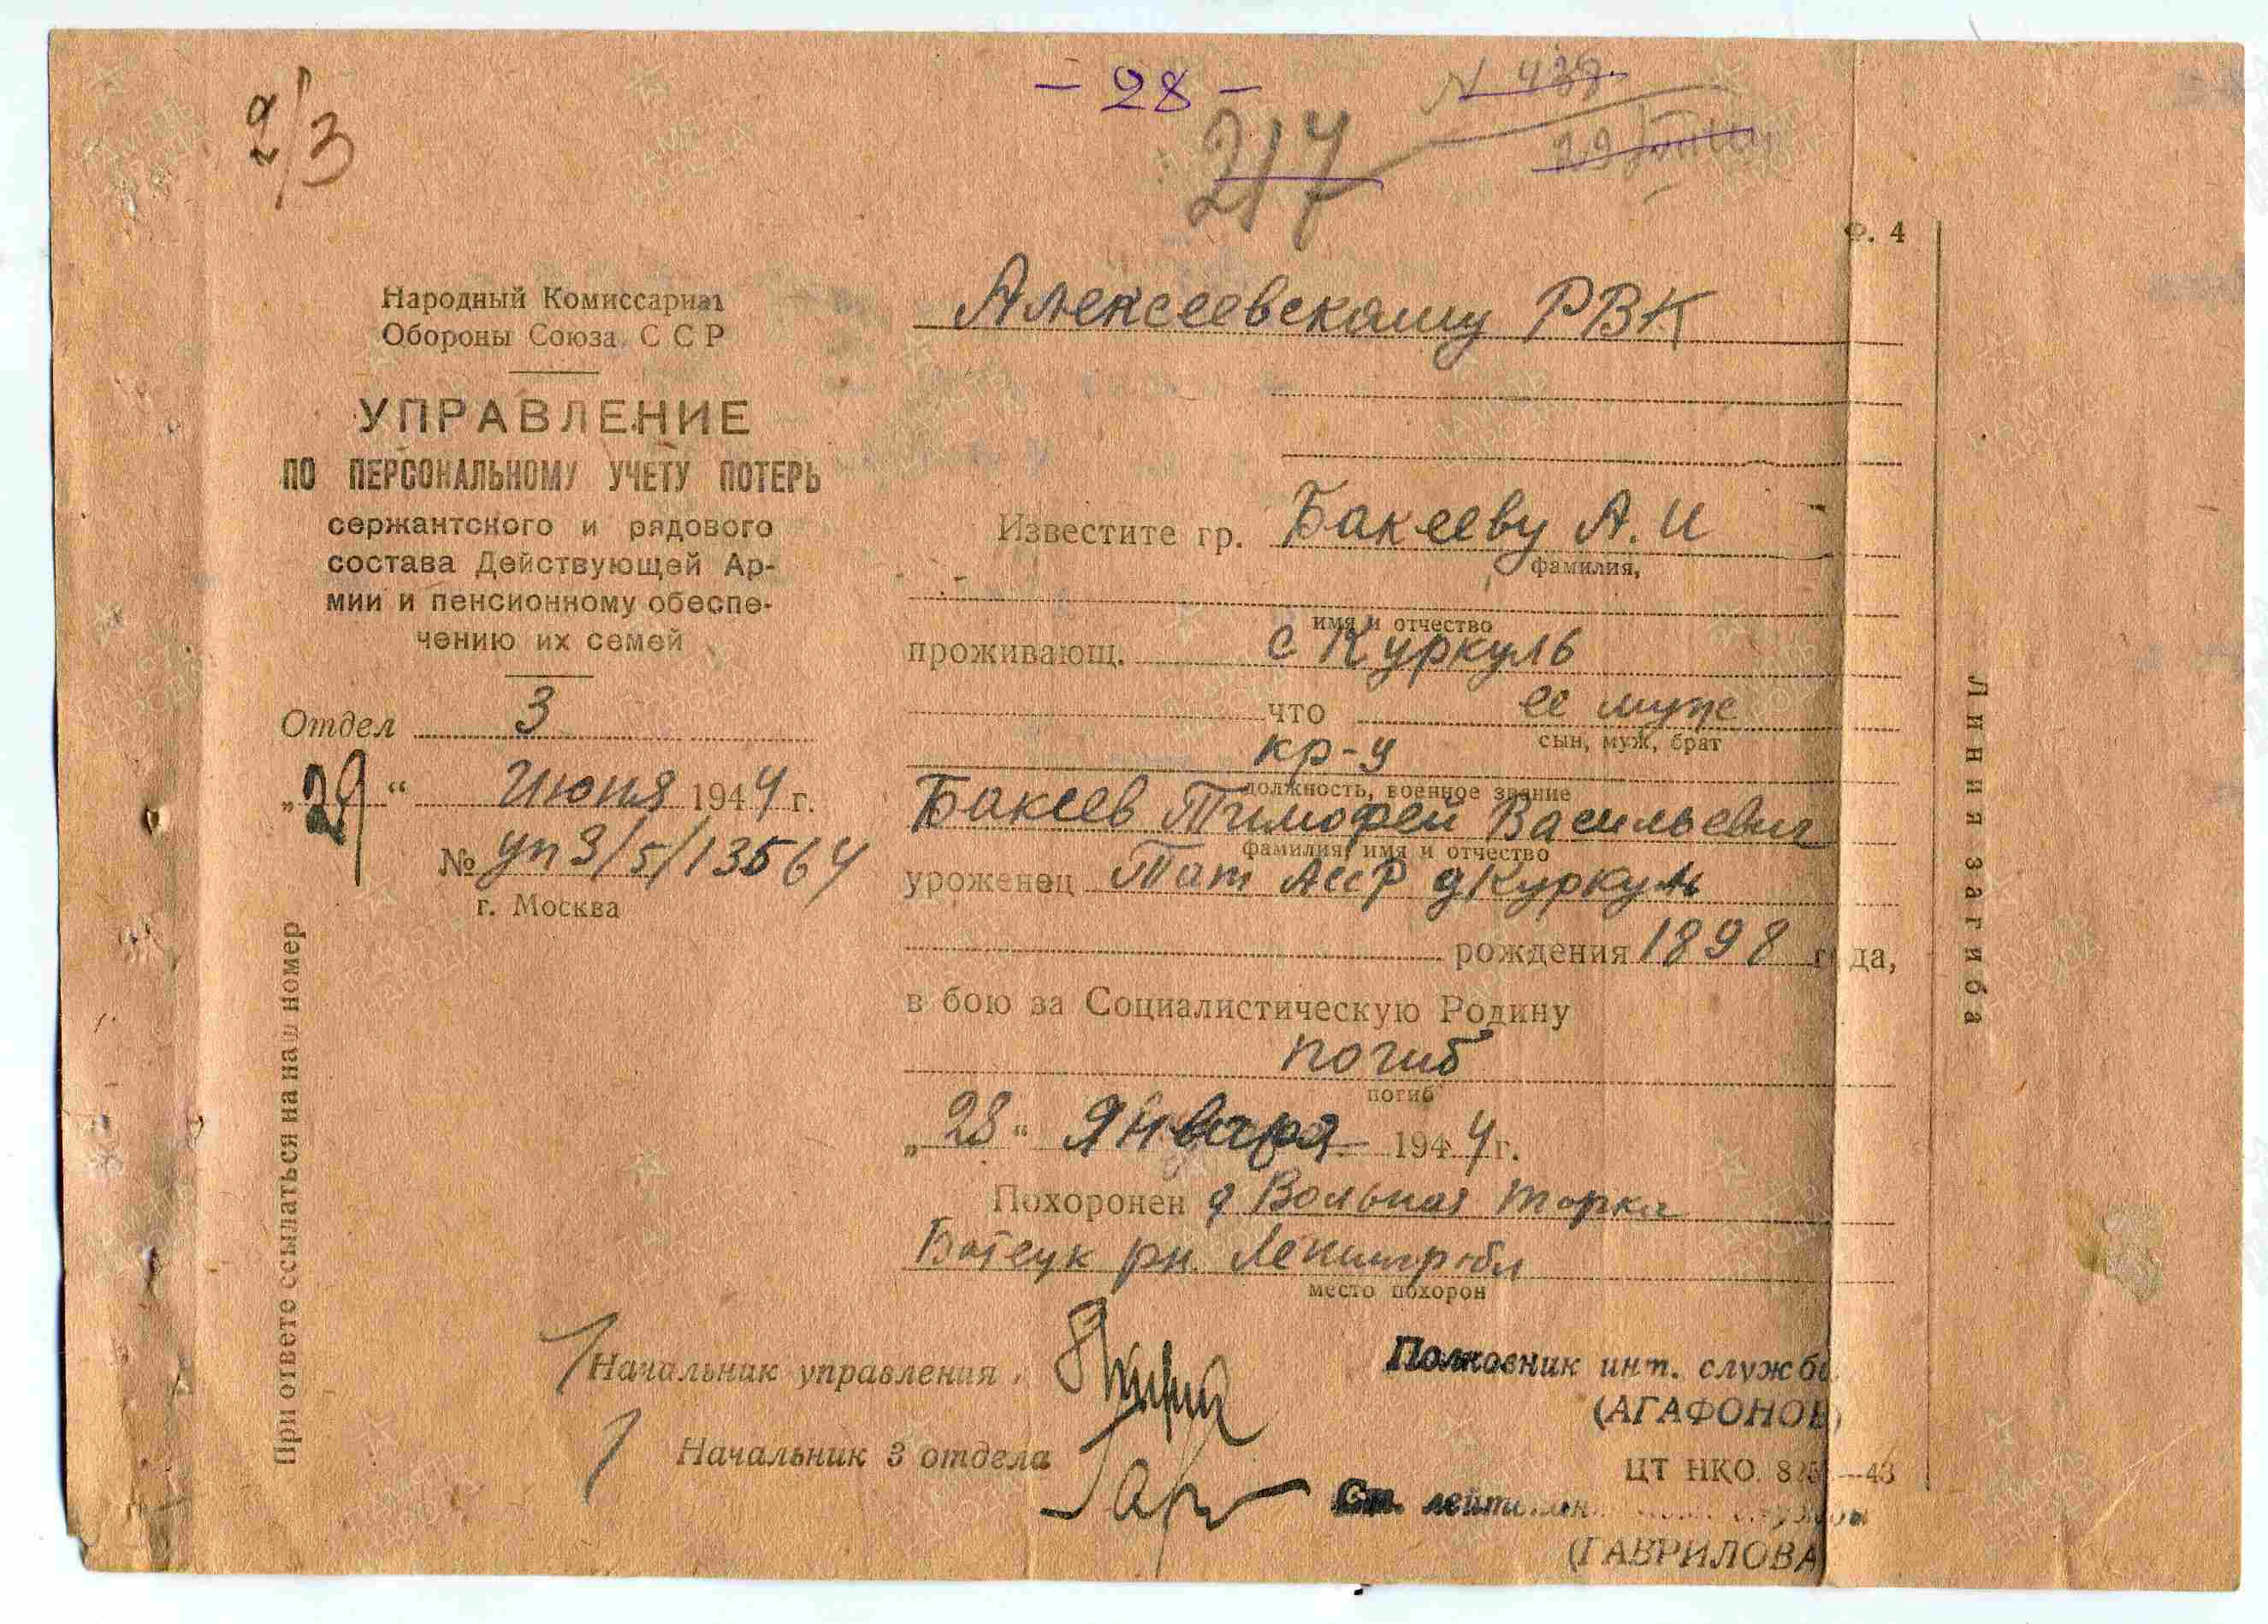 2/3
- 28 -
N 437
217
Ф. 4
Народный Комиссариат
Обороны Союза ССР
УПРАВЛЕНИЕ
ПО ПЕРСОНАЛЬНОМУ УЧЕТУ ПОТЕРЬ
сержантского и рядового
состава Действующей Ар-
мии и пенсионному обеспе-
чению их семей
Отдел 3
„29“ Июня 1944 г.
№ уп 3/5/13564
г. Москва
При ответе ссылаться на наш номер
Алексеевскому РВК
Известите гр. Бакееву А. И
фамилия,
имя и отчество
проживающ. с Куркуль
что ее муж
сын, муж, брат
кр-ц
должность, военное звание
Бакеев Тимофей Васильевич
фамилия, имя и отчество
уроженец Тат АССР д Куркуль
рождения 1898 года,
в бою за Социалистическую Родину
погиб
погиб
„28“ Января 1944 г.
Похоронен д Вольная Горка
Батецк рн Ленингр обл
место похорон
Начальник управления
Полковник инт. службы
(АГАФОНОВ)
Начальник 3 отдела
ЦТ НКО. —43
Ст. лейтенант службы
(ГАВРИЛОВА)
Линия загиба
ПАМЯТЬ НАРОДА